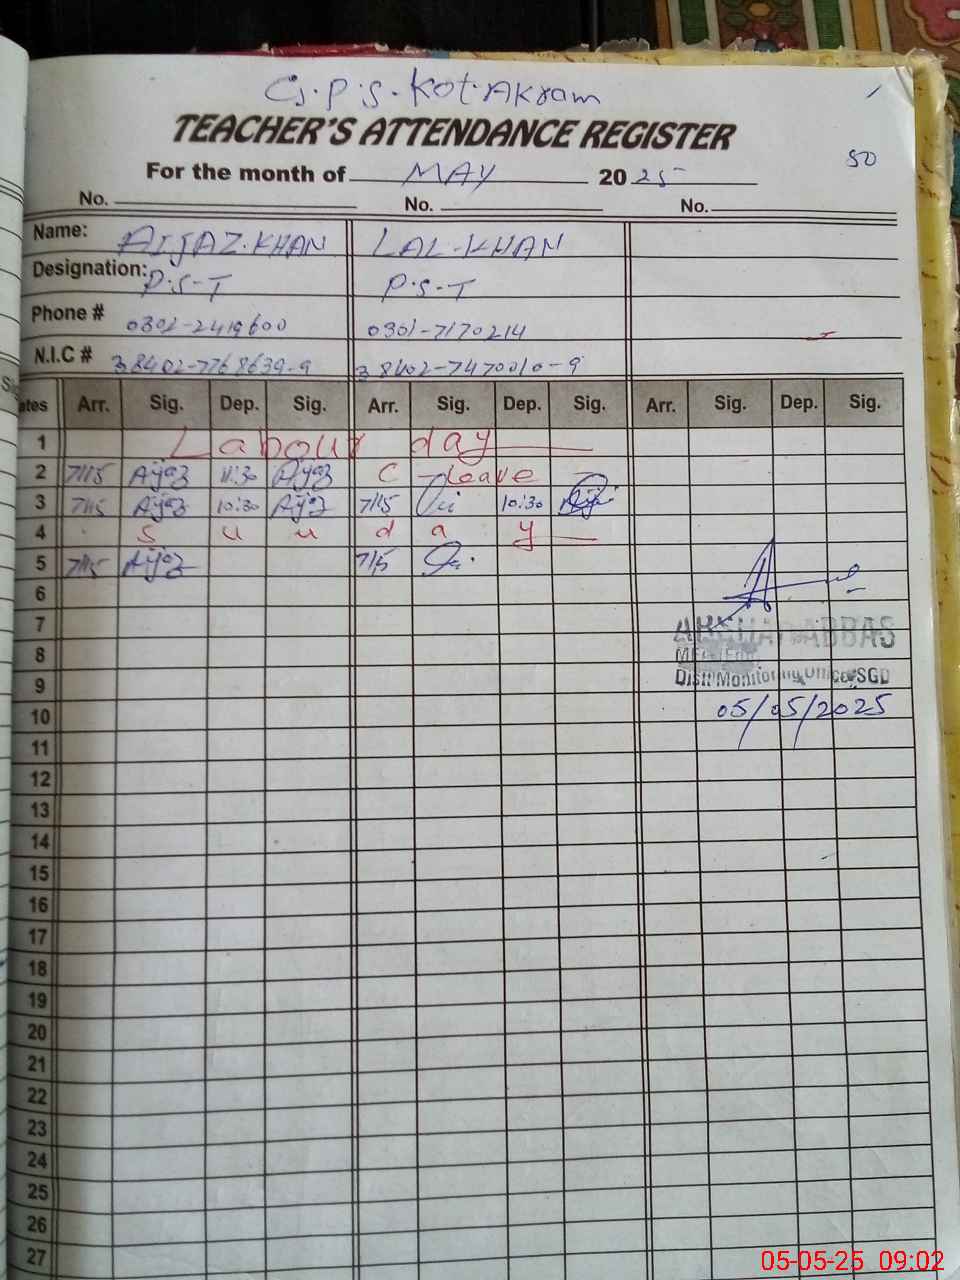 G.P.S. Kot Akram
TEACHER'S ATTENDANCE REGISTER
50
For the month of MAY 2025
No. No. No.
Name: AIJAZ.KHAN LAL-KHAN
Designation: P.S-T P.S-T
Phone # 0301-2419600 0301-7170214
N.I.C # 38402-7768639-9 38402-7470010-9
ates Arr. Sig. Dep. Sig. Arr. Sig. Dep. Sig. Arr. Sig. Dep. Sig.
1 Labour day
2 7/15 Aijaz 11:30 Aijaz C-Leave
3 7/15 Aijaz 10:30 Aijaz 7/15 10:30
4 Sunday
5 7/15 Aijaz 7/15
6
7
ABBAS
8
9
Distt Monitoring Officer SGD
10
05/05/2025
11
12
13
14
15
16
17
18
19
20
21
22
23
24
25
26
27
05-05-25 09:02